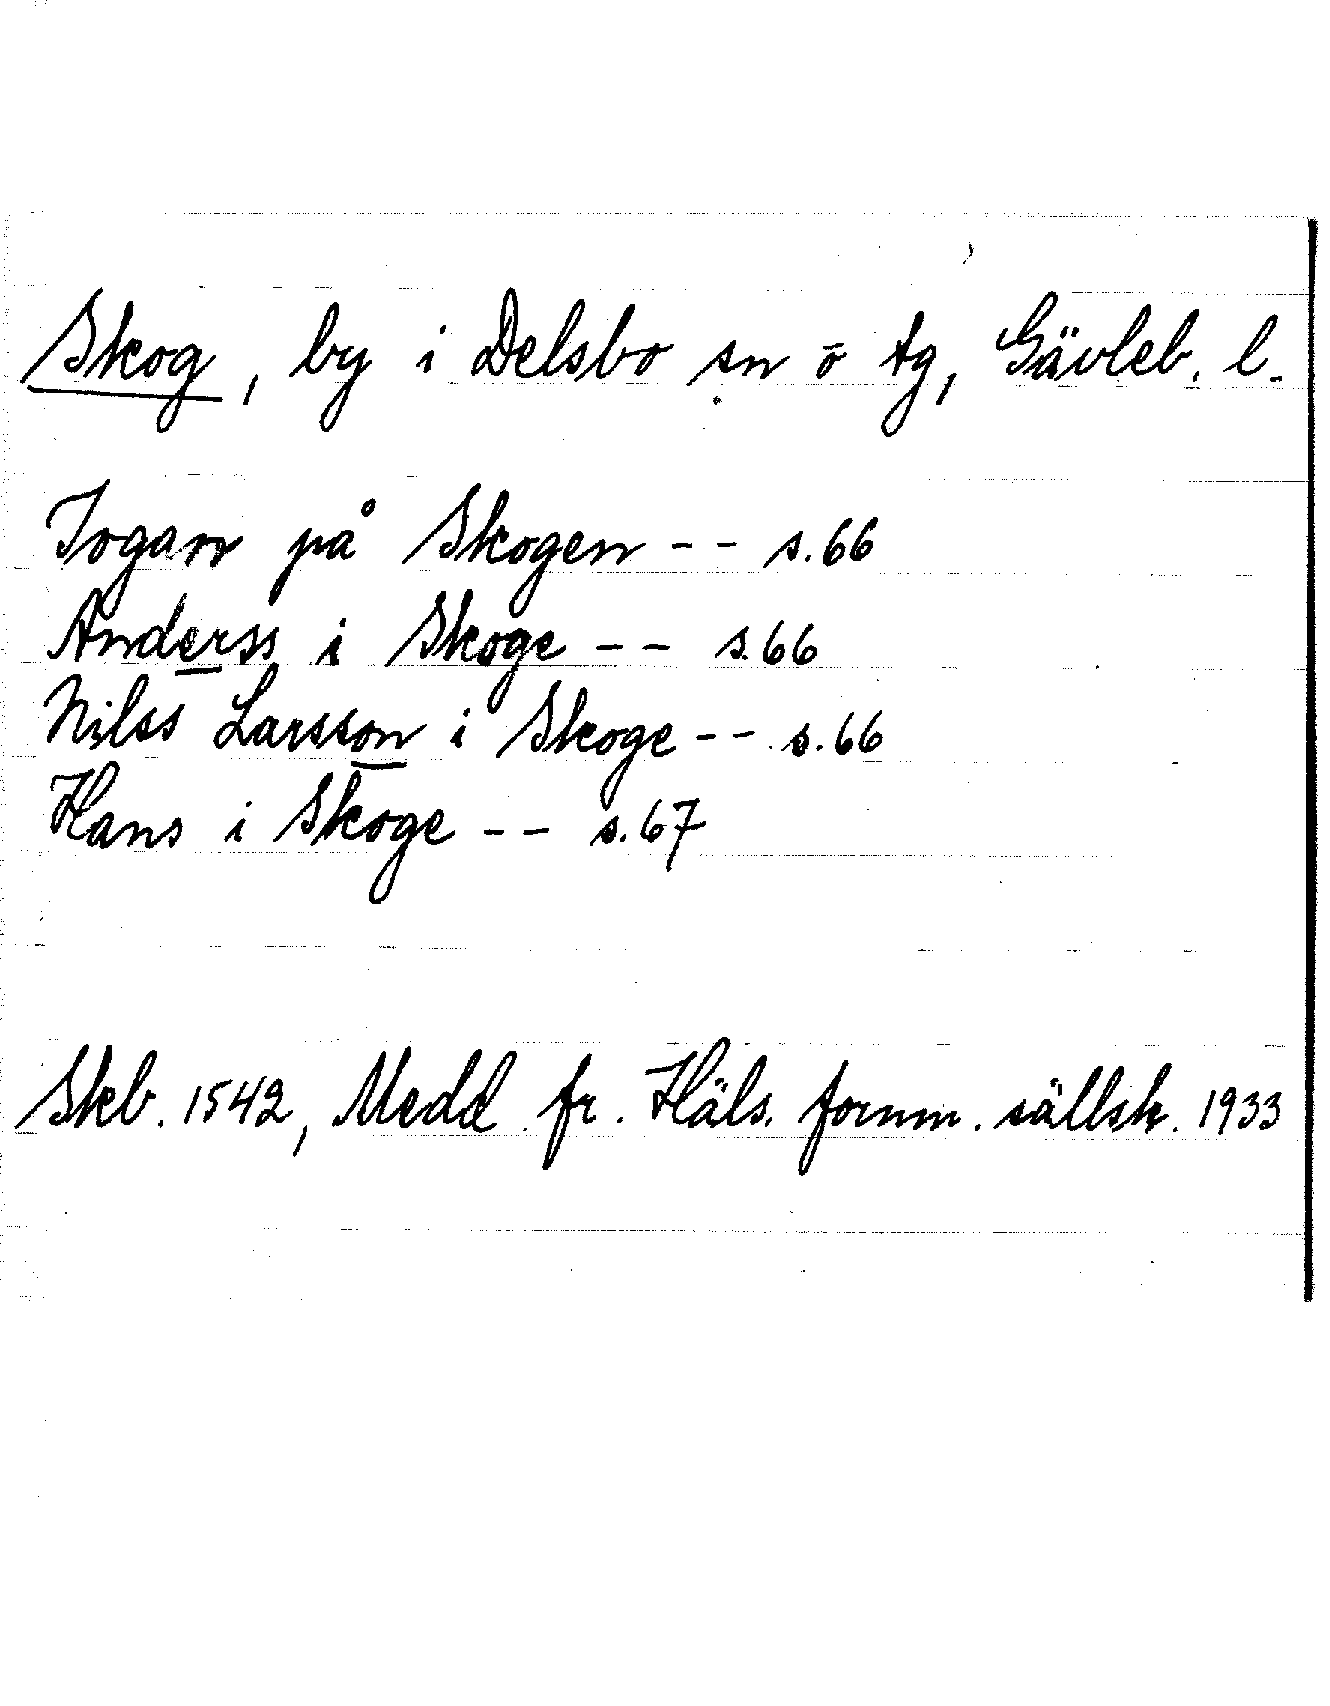 Skog, by i Delsbo sn o tg, Gävleb. l.
Jogan på Skogen -- s.66
Anderss i Skoge -- s.66
Nilss Larsson i Skoge -- s.66
Hans i Skoge -- s.67
Skb. 1542, Medd fr. Häls. fornm. sällsk. 1933